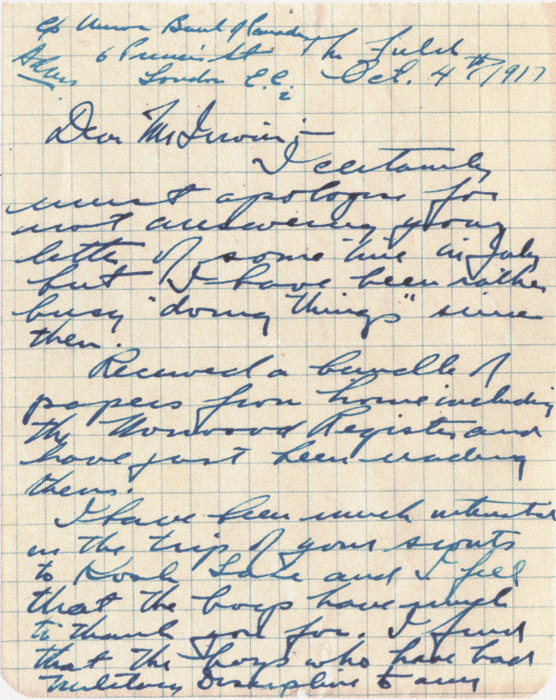 c/o Union Bank of Canada
6 Princes St In Field
Adrs London E.C. 2 Oct. 4th/1917
Dear Mr Irwin:-
I certainly
must apologise for
not answering your
letter of some time in July
but I have been rather
busy "doing things" since
then.
Received a bundle of
papers from home including
the Norwood Register and
have just been reading
them.
I have been much interested
in the trip of your scouts
to Kosh Lake and I feel
that the boys have much
to thank you for. I find
that the boys who have had
military discipline to any